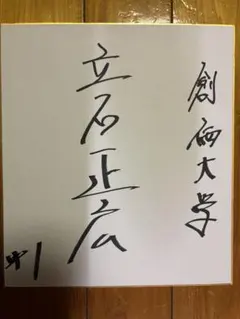 創価大学
立石正広
#1